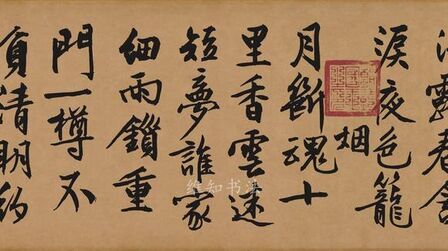 春
淚夜色籠
烟
月斷魂十
里香雲迷
短夢誰家
細雨鎖重
門一樽不
負清明約